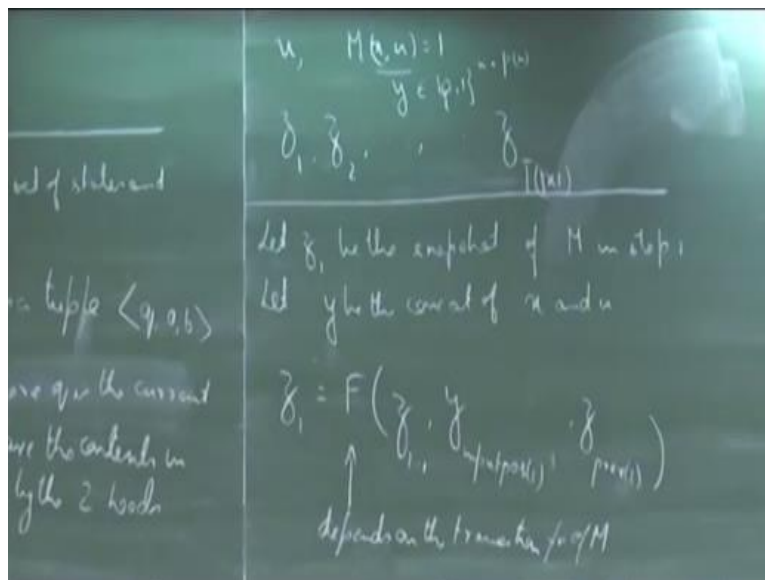 set of states and
tuple ⟨q, a, b⟩
q is the current
are the contents in
by the 2 heads
u, M(x, u) = 1
y ∈ {0,1}^{n + p(n)}
z_1, z_2, . , z_{T(|x|)}
Let z_i be the snapshot of M in step i
Let y be the concat of x and u
z_i = F(z_{i-1}, y_{inputpos(i)}, z_{prev(i)})
↑
depends on the transition fn of M